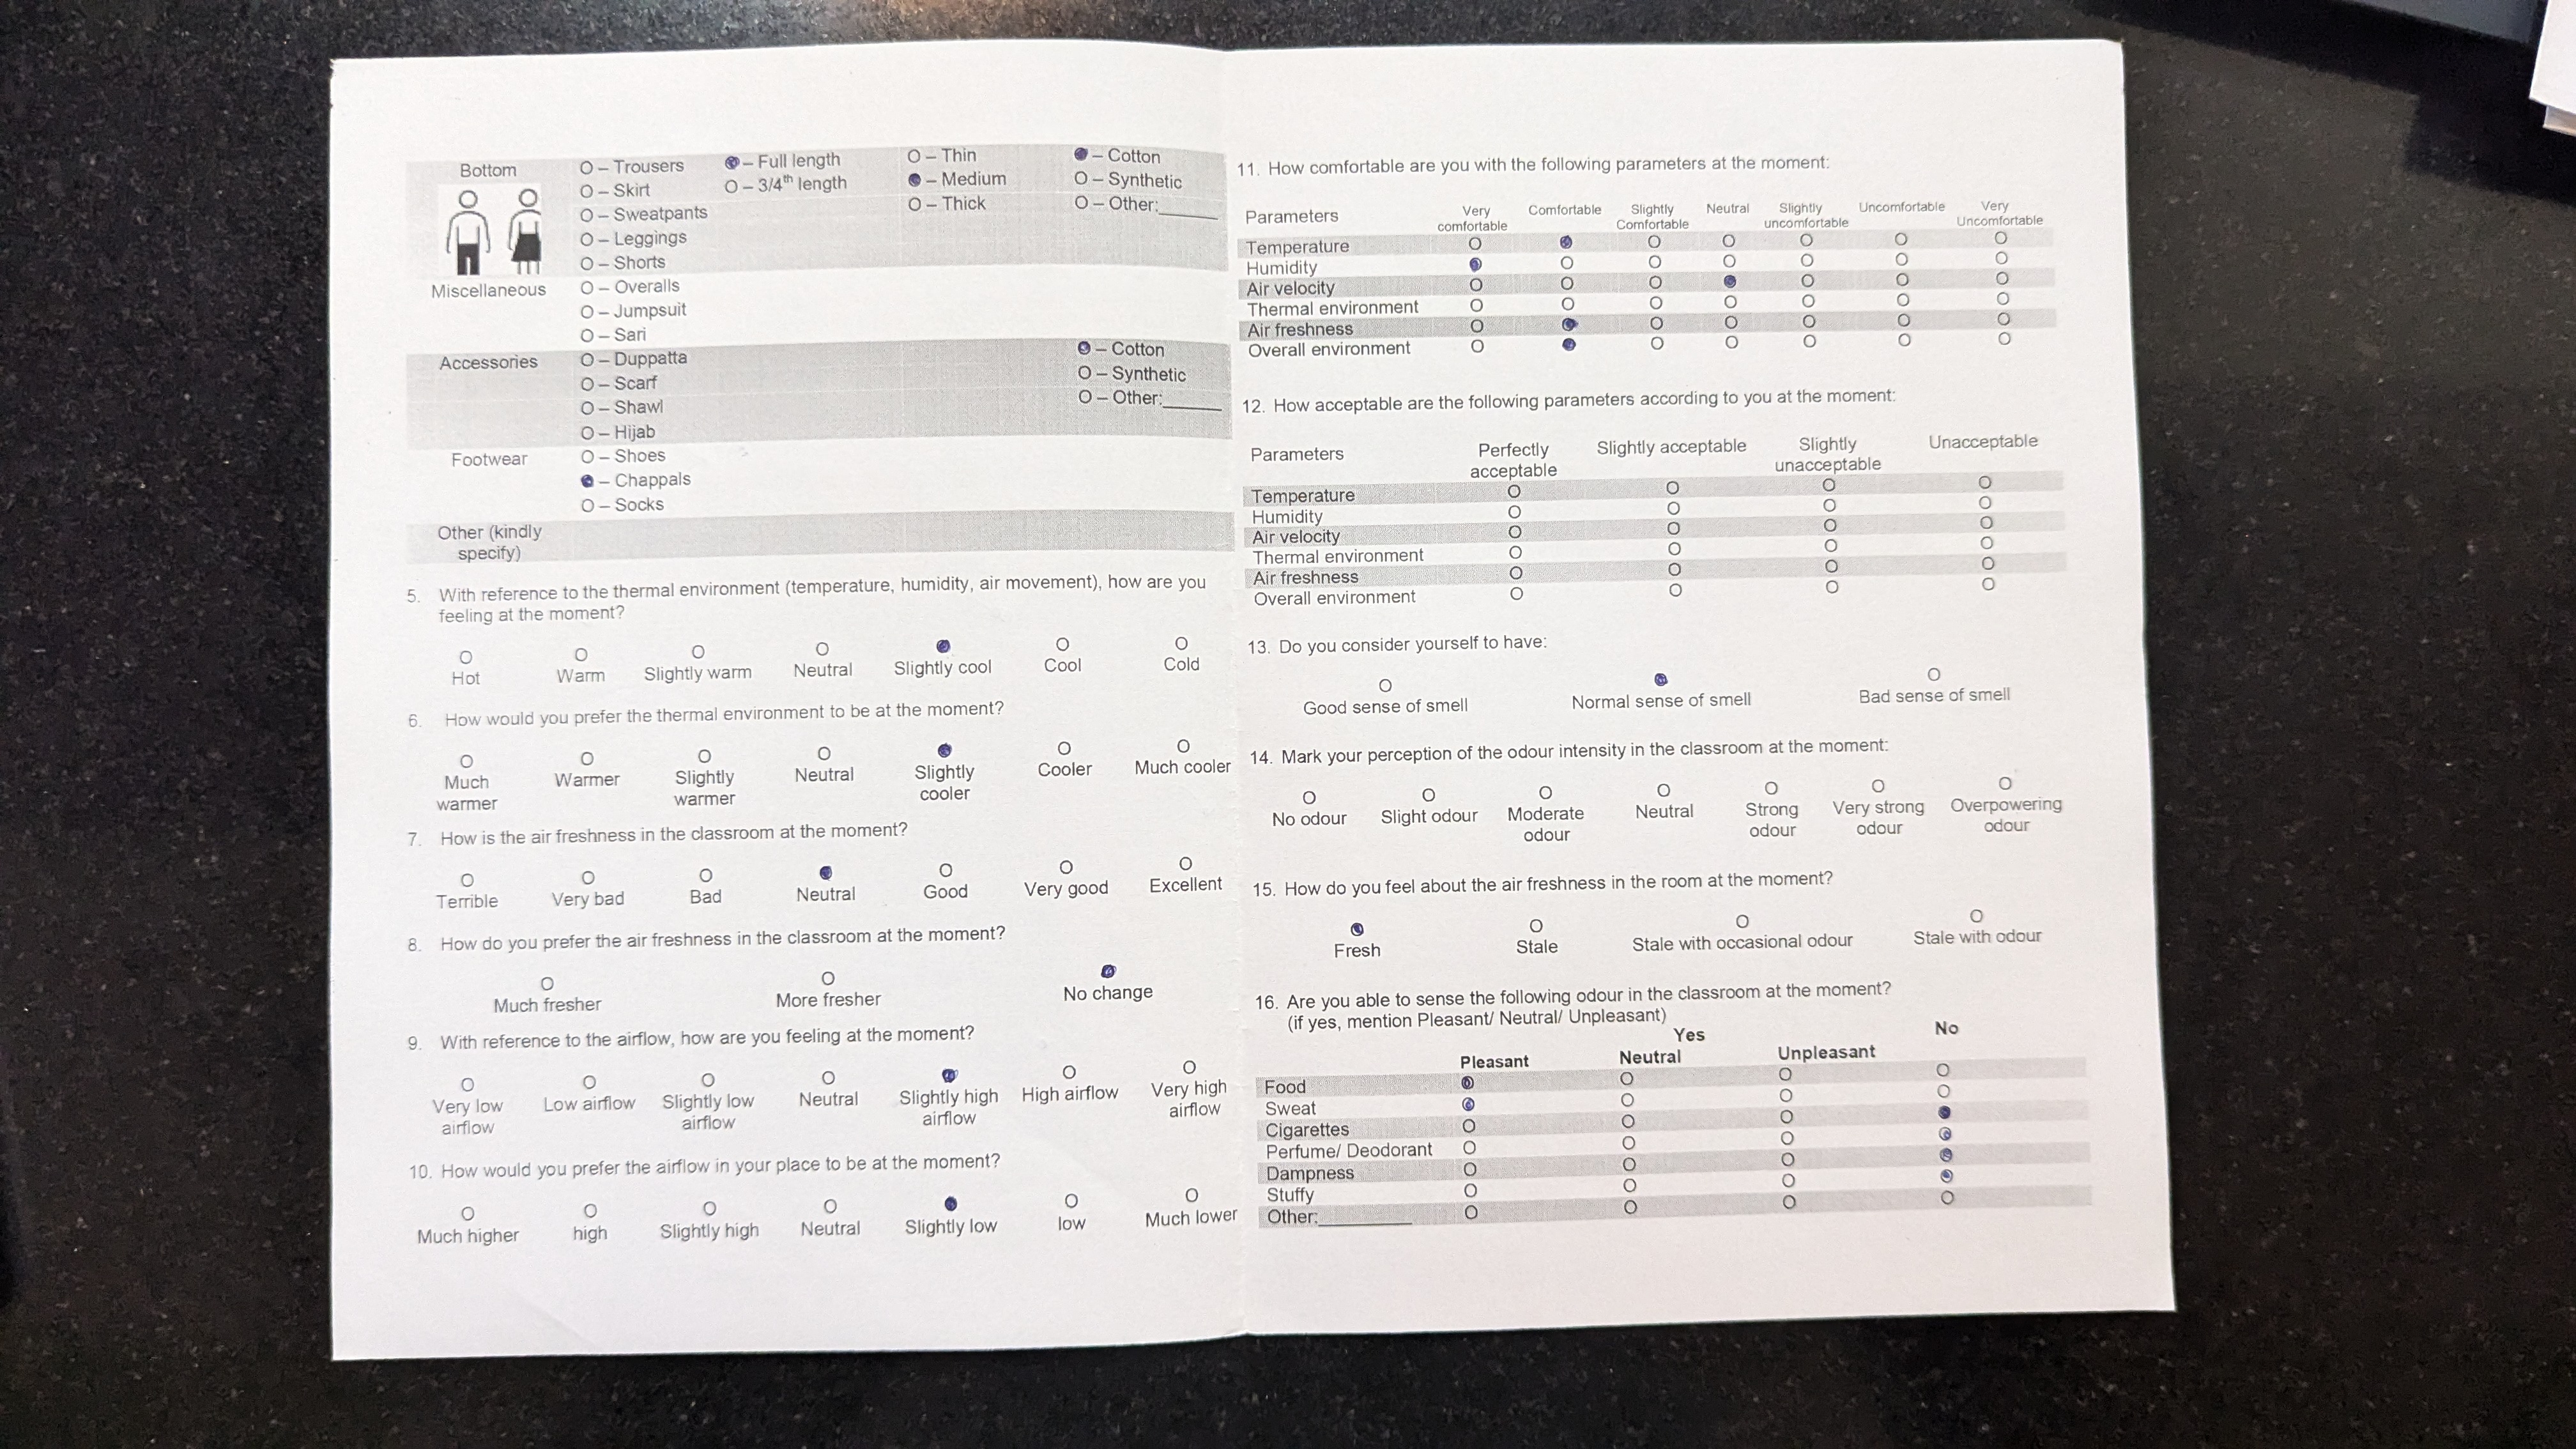 Bottom
O – Trousers
O – Skirt
O – Sweatpants
O – Leggings
O – Shorts
– Full length
O – 3/4th length
O – Thin
– Medium
O – Thick
– Cotton
O – Synthetic
O – Other:______
Miscellaneous
O – Overalls
O – Jumpsuit
O – Sari
Accessories
O – Duppatta
O – Scarf
O – Shawl
O – Hijab
– Cotton
O – Synthetic
O – Other:______
Footwear
O – Shoes
– Chappals
O – Socks
Other (kindly
specify)
5. With reference to the thermal environment (temperature, humidity, air movement), how are you
feeling at the moment?
Hot Warm Slightly warm Neutral Slightly cool Cool Cold
6. How would you prefer the thermal environment to be at the moment?
Much warmer Warmer Slightly warmer Neutral Slightly cooler Cooler Much cooler
7. How is the air freshness in the classroom at the moment?
Terrible Very bad Bad Neutral Good Very good Excellent
8. How do you prefer the air freshness in the classroom at the moment?
Much fresher More fresher No change
9. With reference to the airflow, how are you feeling at the moment?
Very low airflow Low airflow Slightly low airflow Neutral Slightly high airflow High airflow Very high airflow
10. How would you prefer the airflow in your place to be at the moment?
Much higher high Slightly high Neutral Slightly low low Much lower
11. How comfortable are you with the following parameters at the moment:
Parameters Very comfortable Comfortable Slightly Comfortable Neutral Slightly uncomfortable Uncomfortable Very Uncomfortable
Temperature
Humidity
Air velocity
Thermal environment
Air freshness
Overall environment
12. How acceptable are the following parameters according to you at the moment:
Parameters Perfectly acceptable Slightly acceptable Slightly unacceptable Unacceptable
Temperature
Humidity
Air velocity
Thermal environment
Air freshness
Overall environment
13. Do you consider yourself to have:
Good sense of smell Normal sense of smell Bad sense of smell
14. Mark your perception of the odour intensity in the classroom at the moment:
No odour Slight odour Moderate odour Neutral Strong odour Very strong odour Overpowering odour
15. How do you feel about the air freshness in the room at the moment?
Fresh Stale Stale with occasional odour Stale with odour
16. Are you able to sense the following odour in the classroom at the moment?
(if yes, mention Pleasant/ Neutral/ Unpleasant)
Yes No
Pleasant Neutral Unpleasant
Food
Sweat
Cigarettes
Perfume/ Deodorant
Dampness
Stuffy
Other:__________